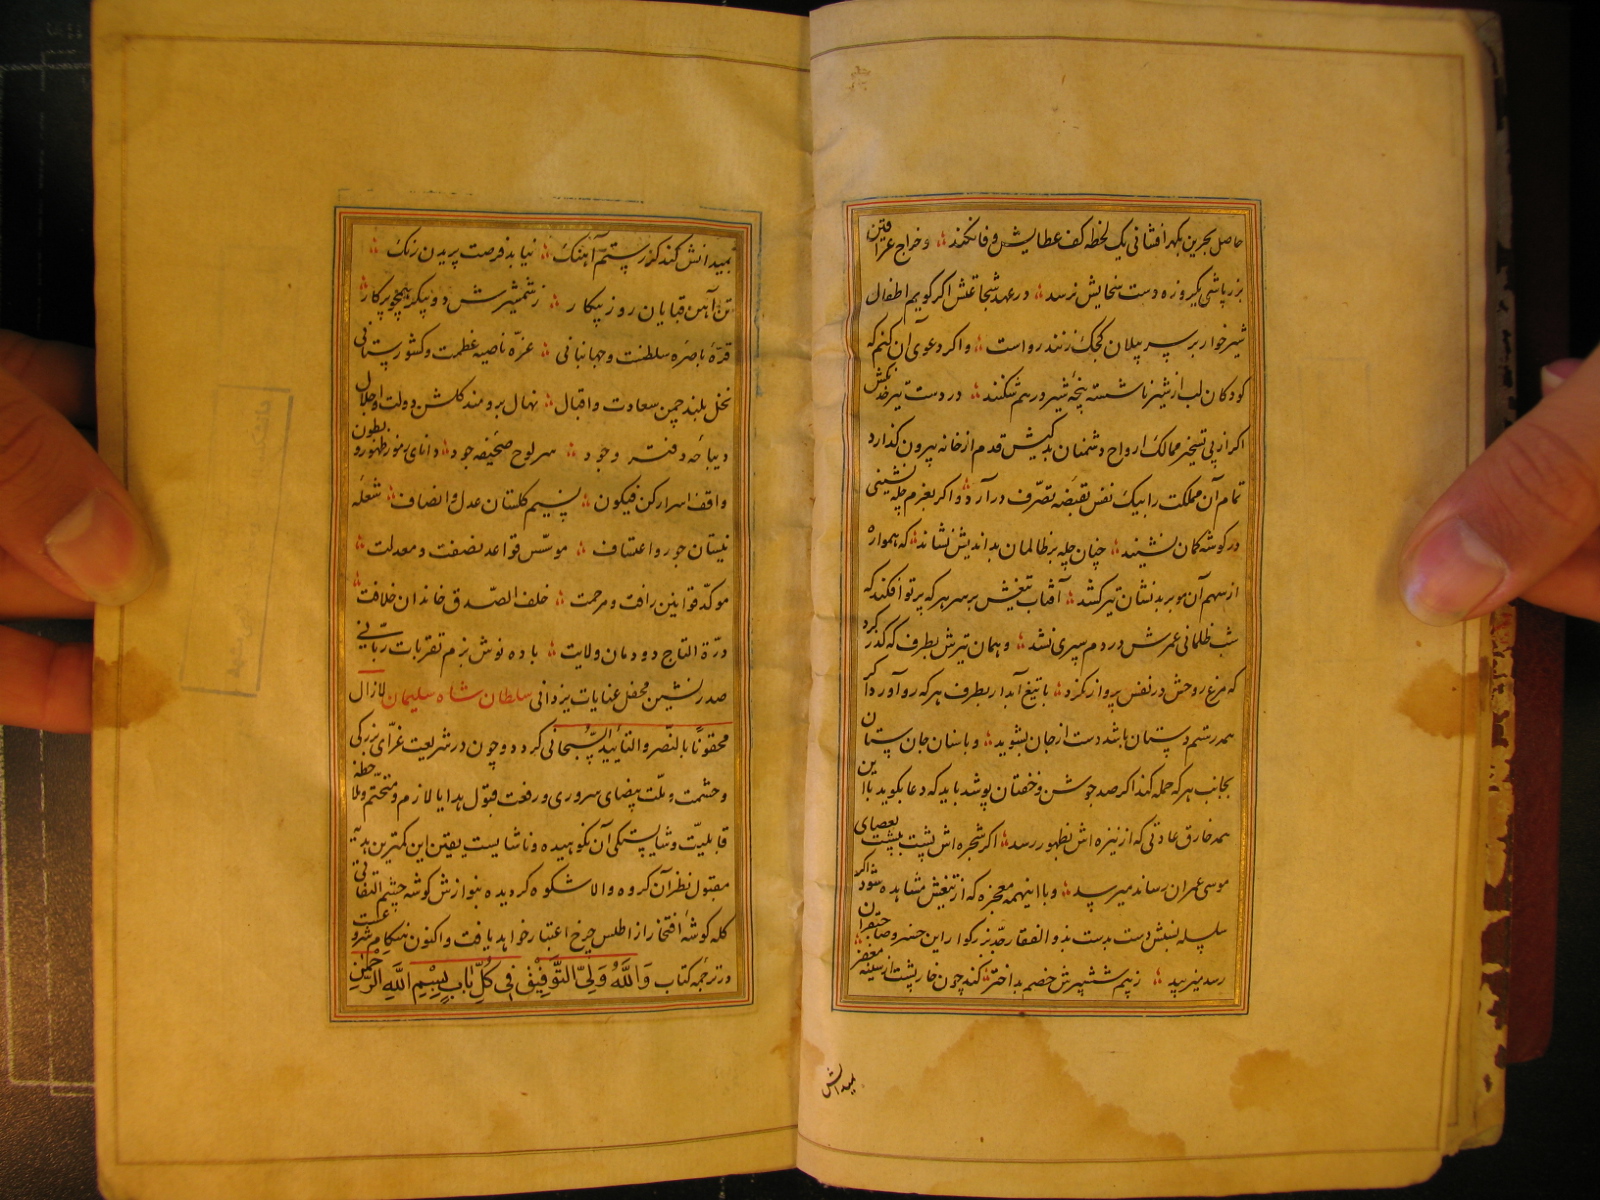 حاصل بحرین بگهر افشانی یک لحظه کف عطایش وفا نکند و خراج عراقین
بزر پاشی یکروزه دست سخایش نرسد در عهد شجاعتش اگر گویم اطفال
شیرخوار بر سر پیلان کجک زنند رواست و اگر دعوی آن کنم که
کودکان لب از شیر ناشسته پنجه شیر در هم شکنند در دست تیر خدنکش
اگر از پی تسخیر ممالک ارواح دشمنان بدکیش قدم از خانه بیرون گذارد
تمام آن مملکت را بیک نفس بقبضه تصرف درآرد و اگر بعزم چله نشینی
در گوشه کمان نشیند چنان چله بر ظالمان بداندیش نشاند که همواره
از سهم آن مو بر بدنشان تیر کشد آفتاب تیغش بر سر هر که پرتو افکند که
شب ظلمانی عمرش در دم سپری نشد و همان تیرش بطرف که گذر کرد
که مرغ روحش در نفس پرواز نکرد با تیغ آبدار بطرف هر که رو آورد اگر
همه رستم دستان باشد دست از جان بشوید و با سنان جان ستان
بجانب هر که حمله کند اگر صد جوشن و خفتان پوشد باید که دعا بگوید با این
همه خارق عادتی که از نیزه اش بظهور رسد اگر شجره اش پشت بپشت بعصای
موسی عمران رساند میرسد و با اینهمه معجزه که از تیغش مشاهده شود اگر
سلسله نسبش دست بدست بذوالفقار جد بزرگوار این خسرو صاحبقران
رسد میزیبد ز بیم ششپرش خصم بداختر کند چون خارپشت از سینه مغفر
میدانش
بمیدانش کند گر رستم آهنک نیابد فرصت پریدن رنک
تن آهن قبایان روز پیکار ز شمشیرش دو پیکر همچو پرکار
قره باصره سلطنت و جهانبانی غره ناصیه عظمت و کشورستانی
نخل بلند چمن سعادت و اقبال نهال برومند گلشن دولت و اجلال
دیباچه دفتر وجود سر لوح صحیفه جود دانای رموز ظهور و بطون
واقف اسرار کن فیکون نسیم گلستان عدل و انصاف شعله
نیستان جور و اعتساف موسس قواعد نصفت و معدلت
موکد قوانین رافت و مرحمت خلف الصدق خاندان خلافت
درة التاج دودمان ولایت باده نوش بزم تقربات ربانی
صدرنشین محفل عنایات یزدانی سلطان شاه سلیمان لازال
محفوفًا بالنصر والتایید السبحانی گردد و چون در شریعت غرای بزرگی
و حشمت و ملت بیضای سروری و رفعت قبول هدایا لازم و متحتم و ملاحظه
قابلیت و شایستگی آن نکوهیده و ناشایست یقین این کمترین هدیه
مقبول نظر آن گروه والا شکوه گردیده بنوازش گوشه چشم التفاتی
کله گوشه افتخار از اطلس چرخ اعتبار خواهد یافت و اکنون هنگام شروعست
در ترجمه کتاب وَاللَّهُ وَلِیُّ التَّوْفِیْقِ فِی کُلِّ بَابٍ بِسْمِ اللَّهِ الرَّحْمنِ